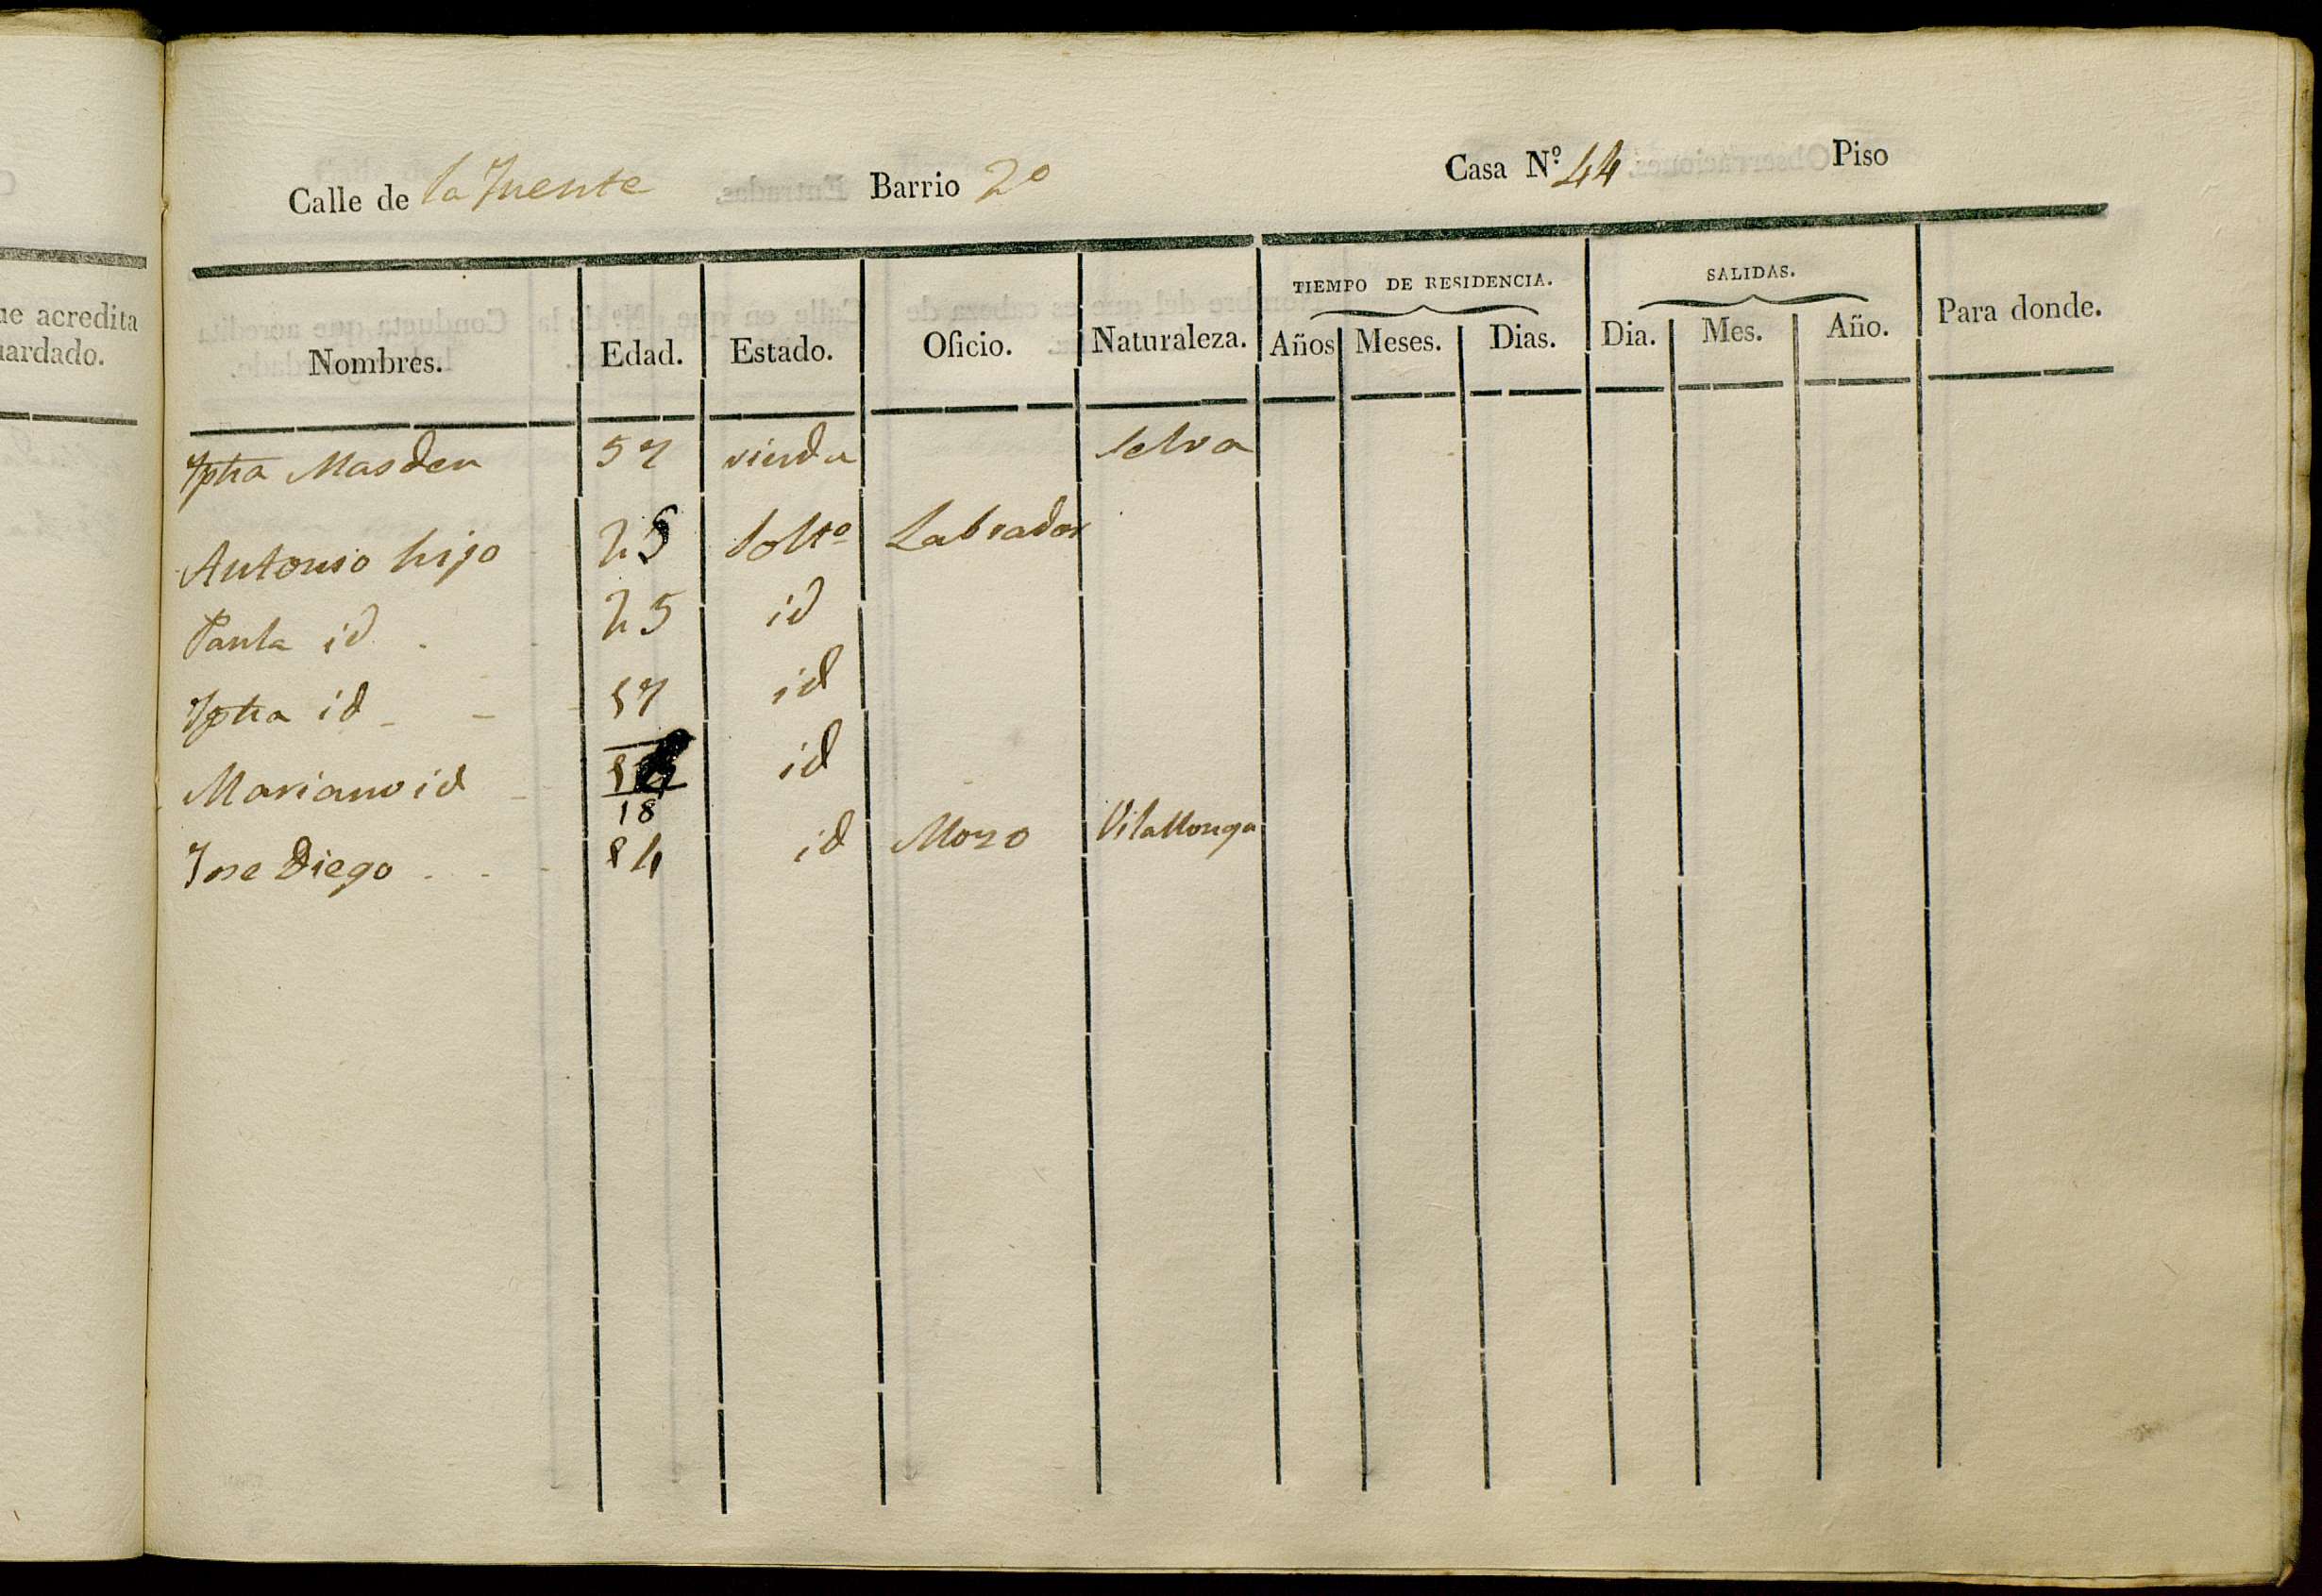 ue acredita
uardado.
Calle de la Fuente Barrio 2º Casa Nº. 44 Piso
TIEMPO DE RESIDENCIA. SALIDAS.
Nombres. Edad. Estado. Oficio. Naturaleza. Años Meses. Dias. Dia. Mes. Año. Para donde.
Jpha Masdeu 57 viuda Selva
Antonio hijo 25 Soltº Labrador
Paula id. 25 id
Jpha id 17 id
Mariano id 18 id
Jose Diego id Mozo Vilallonga